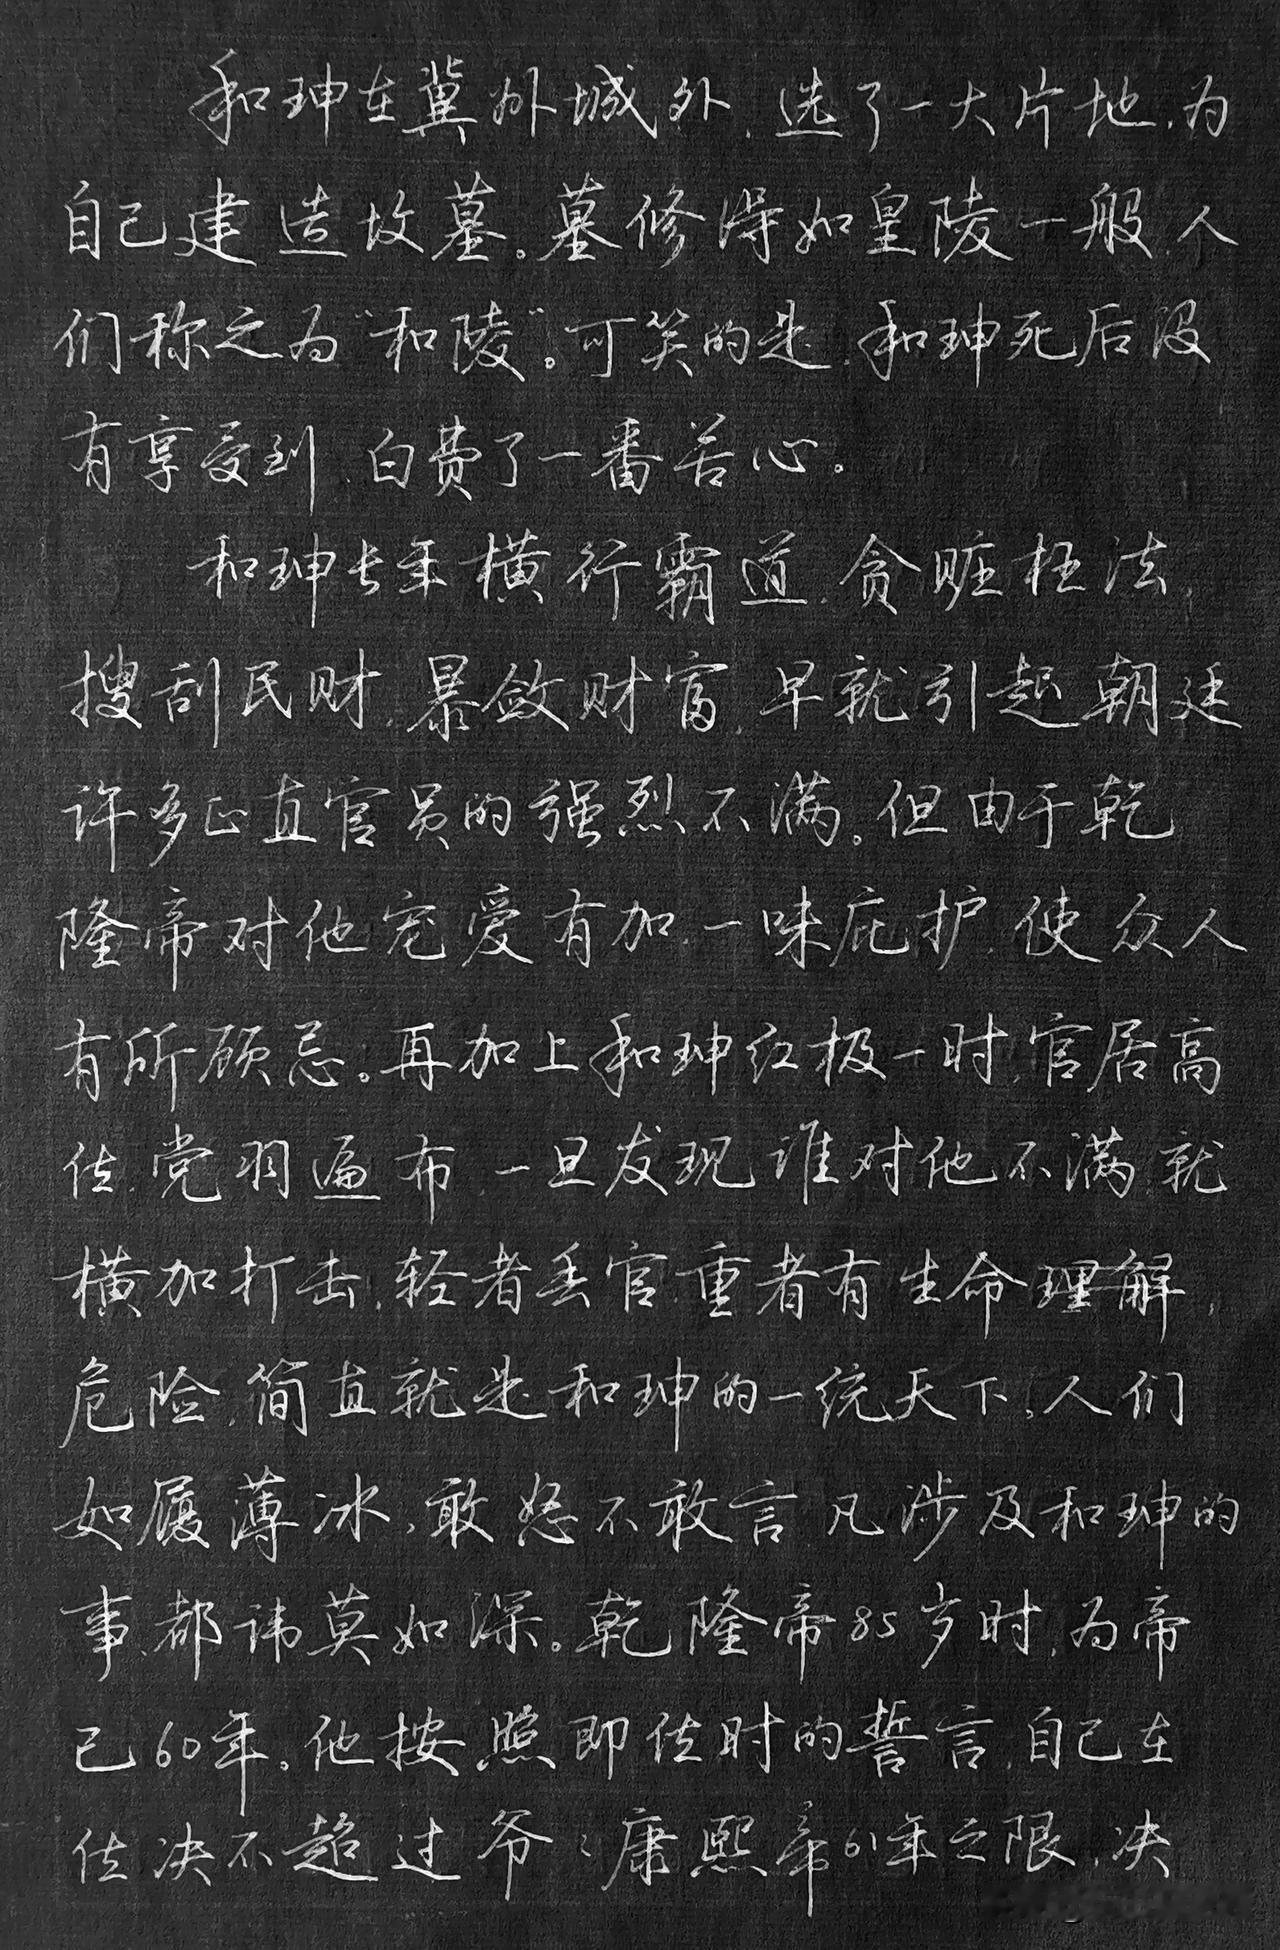 和珅在冀州城外,选了一大片地,为
自己建造坟墓。墓修得如皇陵一般,人
们称之为“和陵”。可笑的是,和珅死后没
有享受到,白费了一番苦心。
和珅长年横行霸道,贪赃枉法,
搜刮民财,暴敛财富,早就引起朝廷
许多正直官员的强烈不满。但由于乾
隆帝对他宠爱有加,一味庇护,使众人
有所顾忌。再加上和珅红极一时,官居高
位,党羽遍布,一旦发现谁对他不满,就
横加打击,轻者丢官,重者有生命理解,
危险,简直就是和珅的一统天下,人们
如履薄冰,敢怒不敢言,凡涉及和珅的
事,都讳莫如深。乾隆帝85岁时,为帝
已60年。他按照即位时的誓言,自己在
位决不超过爷々康熙帝61年之限,决